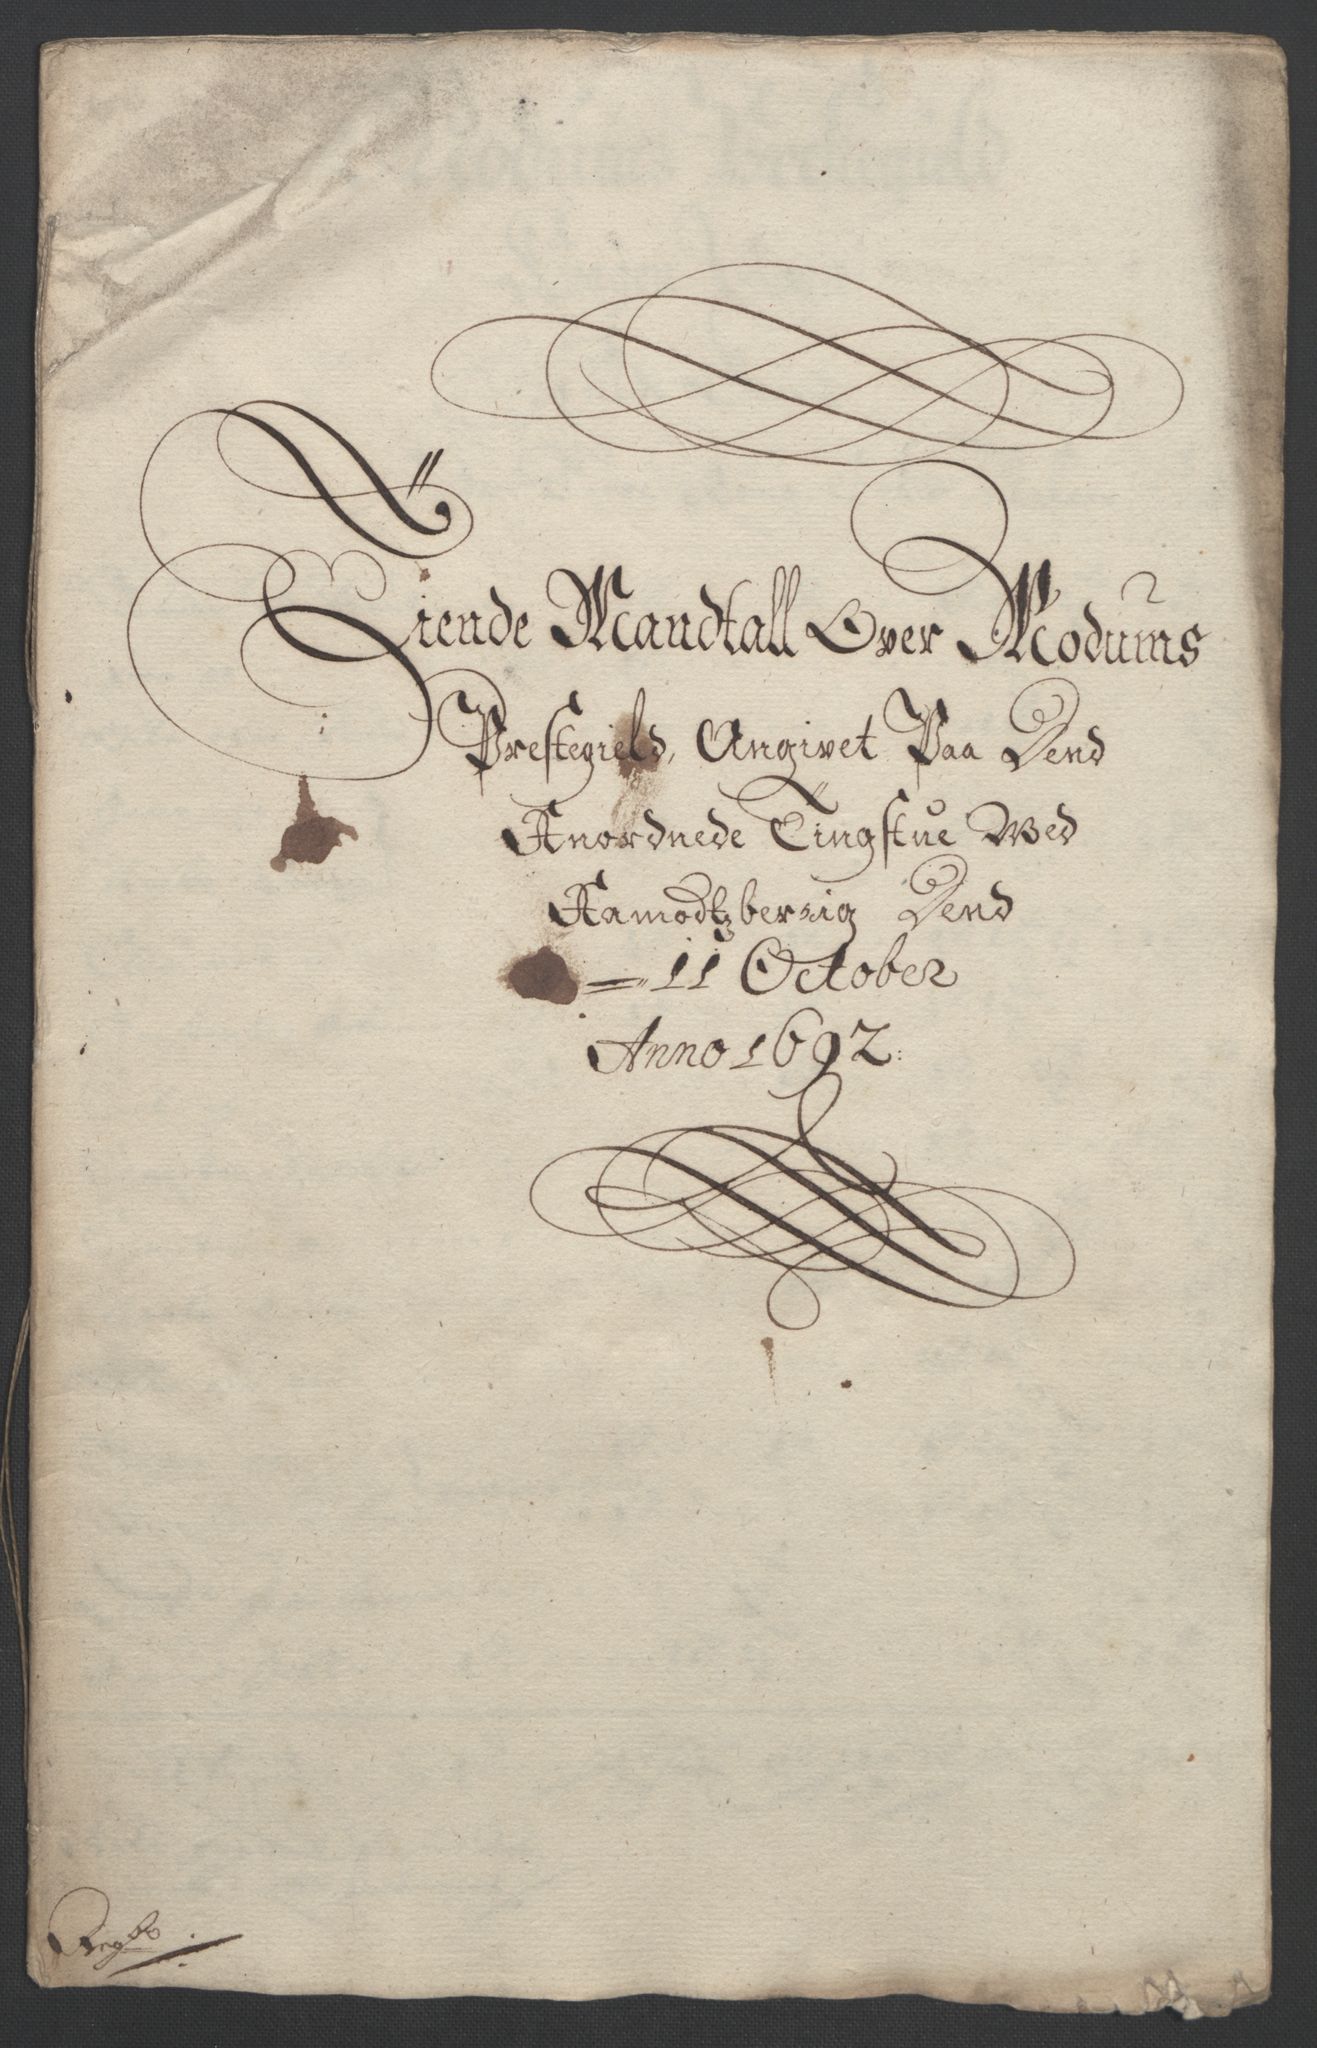 Tiende Mandtall Over Modums
Prestegield, Angivet Paa Dend
Anordnede Tingstue Wed
Aamodtzberrig Dend
11 October
Anno 1692: